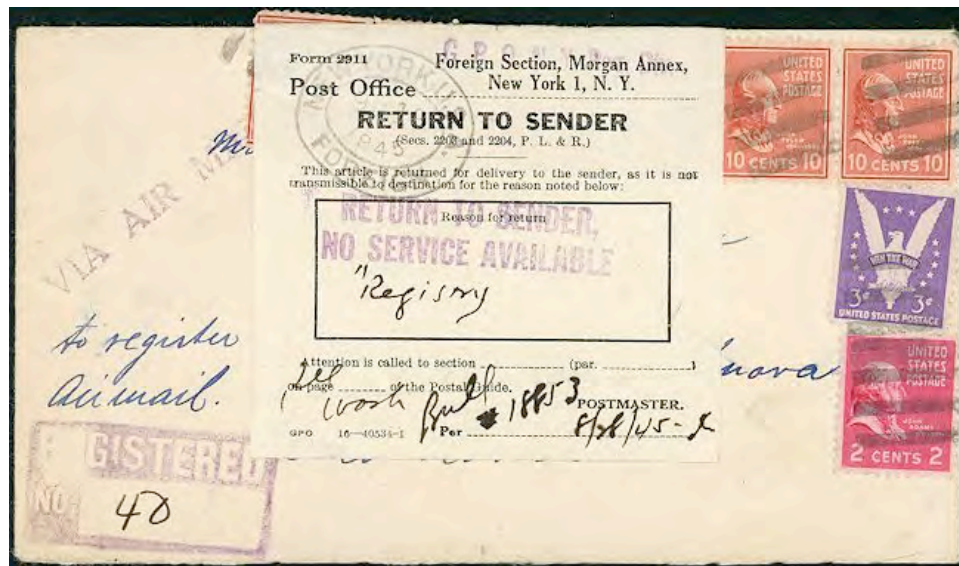 Form 2911
Foreign Section, Morgan Annex,
Post Office New York 1, N. Y.
RETURN TO SENDER
(Secs. 2203 and 2204, P. L. & R.)
This article is returned for delivery to the sender, as it is not
transmissible to destination for the reason noted below:
Reason for return
RETURN TO SENDER,
NO SERVICE AVAILABLE
"Registry
Attention is called to section (par. )
on page of the Postal Guide.
Bull # 18853
POSTMASTER.
GPO 16—40534-1 Per 8/28/45
VIA AIR
to register
Airmail.
REGISTERED
NO.
40
UNITED
STATES
POSTAGE
10 CENTS 10
UNITED
STATES
POSTAGE
10 CENTS 10
WIN THE WAR
3¢ 3¢
UNITED STATES POSTAGE
UNITED
STATES
POSTAGE
JOHN
ADAMS
2 CENTS 2